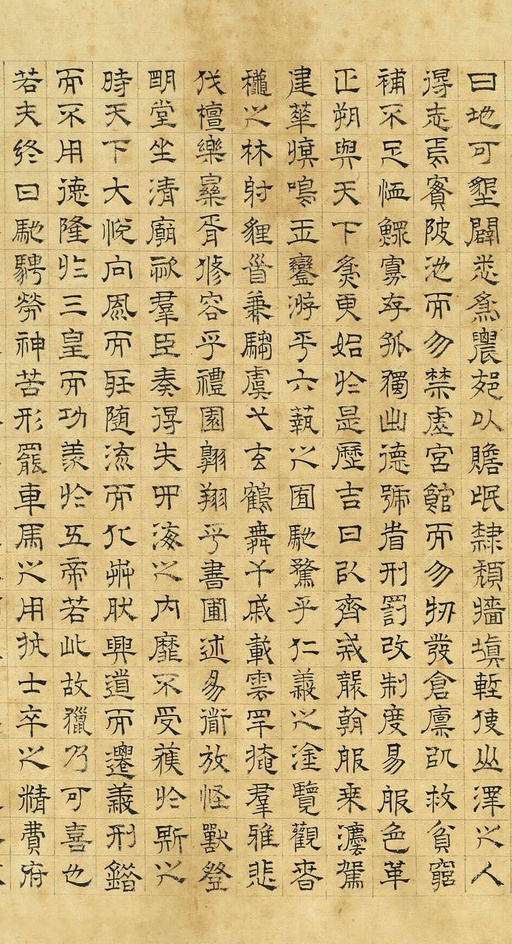 曰地可墾闢悉為農郊以贍氓隸頹牆填塹使山澤之人
得志焉實陂池而勿禁虛宮館而勿牣發倉廩以救貧窮
補不足恤鰥寡存孤獨出德號省刑罰改制度易服色革
正朔與天下為更始於是歷吉日以齊戒襲朝服乘灋駕
建華旗鳴玉鸞游乎六藝之囿馳騖乎仁義之塗覽觀春
穐之林射貍首兼騶虞弋玄鶴舞干戚載雲罕揜羣雅悲
伐檀樂樂胥修容乎禮園翱翔乎書圃述易道放怪獸登
明堂坐清廟恣羣臣奏得失四海之內靡不受獲於斯之
時天下大悅向風而聽隨流而化芔然興道而遷義刑錯
而不用德隆於三皇而功羨於五帝若此故獵乃可喜也
若夫終日馳騁勞神苦形罷車馬之用抗士卒之精費府